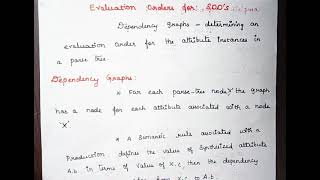 Evaluation Orders for SDD's
Dependency Graphs - determining an
evaluation order for the attribute instances in
a parse tree.
Dependency Graphs:
* For each parse-tree node, the graph
has a node for each attribute associated with a node
'x'.
* A Semantic rule associated with a
Production defines the value of Synthesized attribute
A.b in terms of value of X.c, then the dependency
from X.c to A.b.